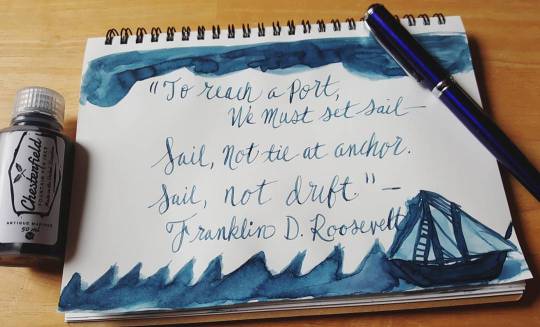 "To reach a Port,
We Must set sail—
Sail, Not tie at anchor.
Sail, not drift." —
Franklin D. Roosevelt
Chesterfield
ANTIQUE
50 mL